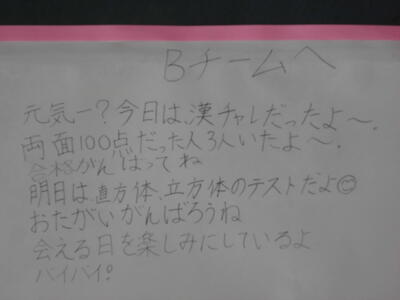 Bチームへ
元気ー？今日は、漢チャレだったよ〜。
両面100点だった人3人いたよ〜。
合格がんばってね
明日は、直方体、立方体のテストだよ☺
おたがいがんばろうね
会える日を楽しみにしているよ
バイバイ!